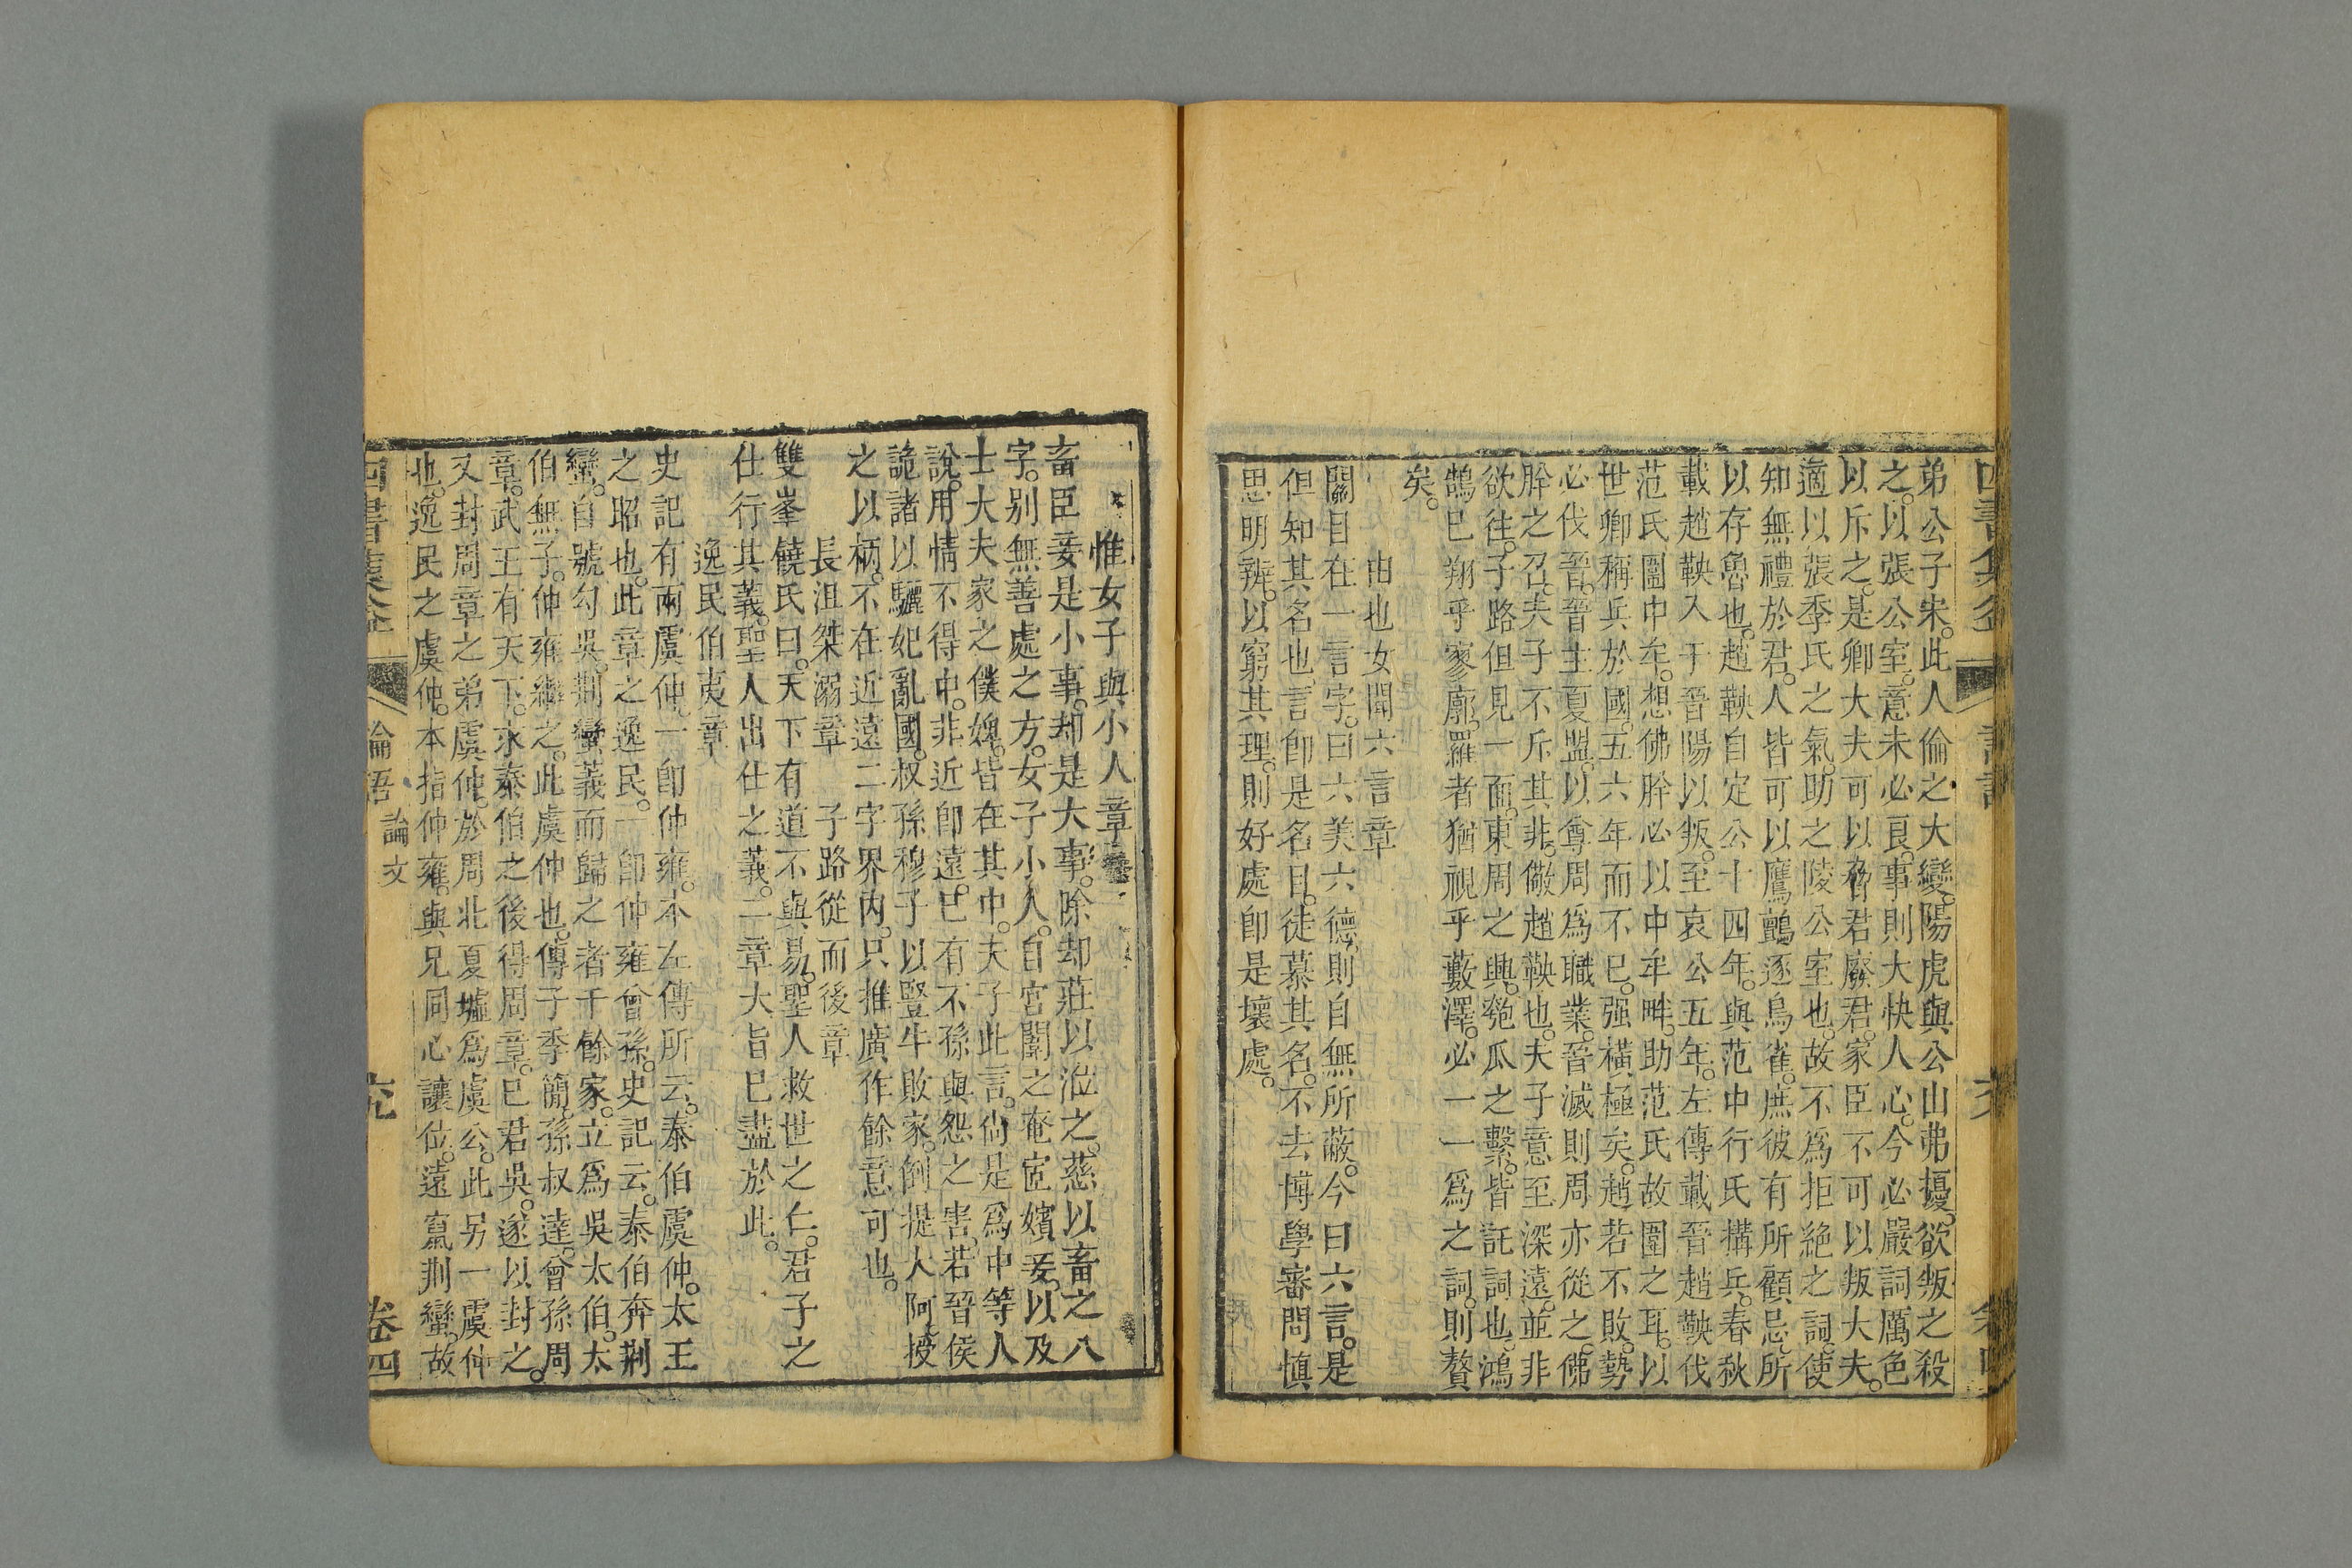 弟公子宋。此人倫之大變。陽虎與公山弗擾。欲叛之殺
之。以張公室。意未必良。事則大快人心。今必嚴詞厲色
以斥之。是卿大夫可以脅君廢君。家臣不可以叛大夫。
適以張季氏之氣。助之陵公室也。故不爲拒絕之詞。使
知無禮於君。人皆可以鷹鸇逐鳥雀。庶彼有所顧忌。所
以存魯也。趙鞅自定公十四年。與范中行氏搆兵。春秋
載趙鞅入于晉陽以叛。至哀公五年。左傳載晉趙鞅伐
范氏圍中牟。想佛肸必以中牟畔。助范氏故圍之耳。以
世卿稱兵於國。五六年而不已。强橫極矣。趙若不敗。勢
必伐晉。晉主夏盟。以尊周爲職業。晉滅則周亦從之。佛
肸之召。夫子不斥其非。儆趙鞅也。夫子意至深遠。並非
欲往。子路但見一面。東周之興。匏瓜之繫。皆託詞也。鴻
鵠已翔乎寥廓。羅者猶視乎藪澤。必一一爲之詞。則贅
矣。
由也女聞六言章
關目在一言字。曰六美六德。則自無所蔽。今曰六言。是
但知其名也。言卽是名目。徒慕其名。不去博學審問愼
思明辨。以窮其理。則好處卽是壞處。
四書集
卷四
惟女子與小人章
畜臣妾是小事。却是大事。除却莊以涖之。慈以畜之八
字。别無善處之方。女子小人。自宮闈之奄宦嬪妾。以及
士大夫家之僕婢。皆在其中。夫子此言。尙是爲中等人
說。用情不得中。非近卽遠。已有不孫與怨之害。若晉侯
詭諸以驪妃亂國。叔孫穆子以豎牛敗家。倒提人阿。授
之以柄。不在近遠二字界內。只推廣作餘意可也。
長沮桀溺章 子路從而後章
雙峯饒氏曰。天下有道不與易。聖人救世之仁。君子之
仕行其義。聖人出仕之義。二章大旨已盡於此。
逸民伯夷章
史記有兩虞仲。一卽仲雍。本左傳所云。泰伯虞仲。太王
之昭也。此章之逸民。一卽仲雍曾孫。史記云。泰伯奔荆
蠻。自號勾吳。荆蠻義而歸之者千餘家。立爲吳太伯。太
伯無子。仲雍繼之。此虞仲也。傳子季簡。孫叔達。曾孫周
章。武王有天下。求泰伯之後得周章。已君吳。遂以封之。
又封周章之弟虞仲。於周北夏墟爲虞公。此另一虞仲
也。逸民之虞仲。本指仲雍。與兄同心讓位。遠竄荆蠻。故
論語 論文
卷四